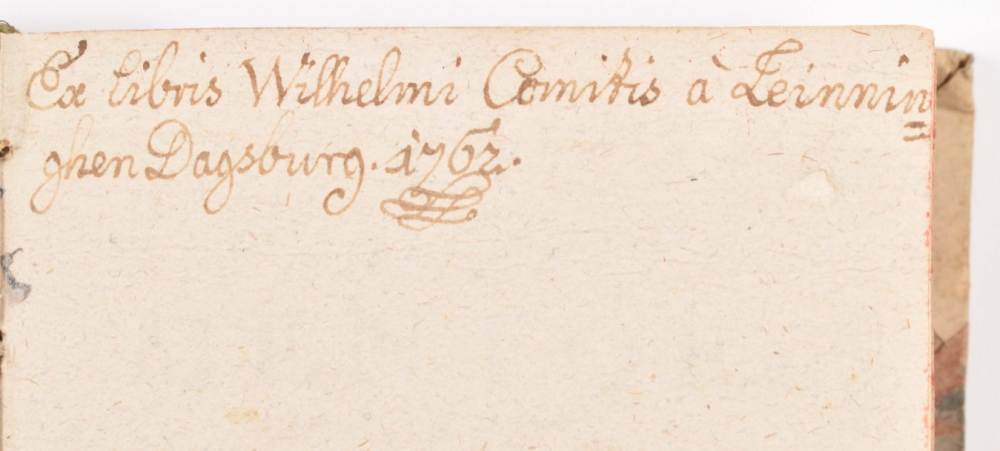 Ex libris Wilhelmi Comitis à Leinnin=
ghen Dagsburg. 1762.